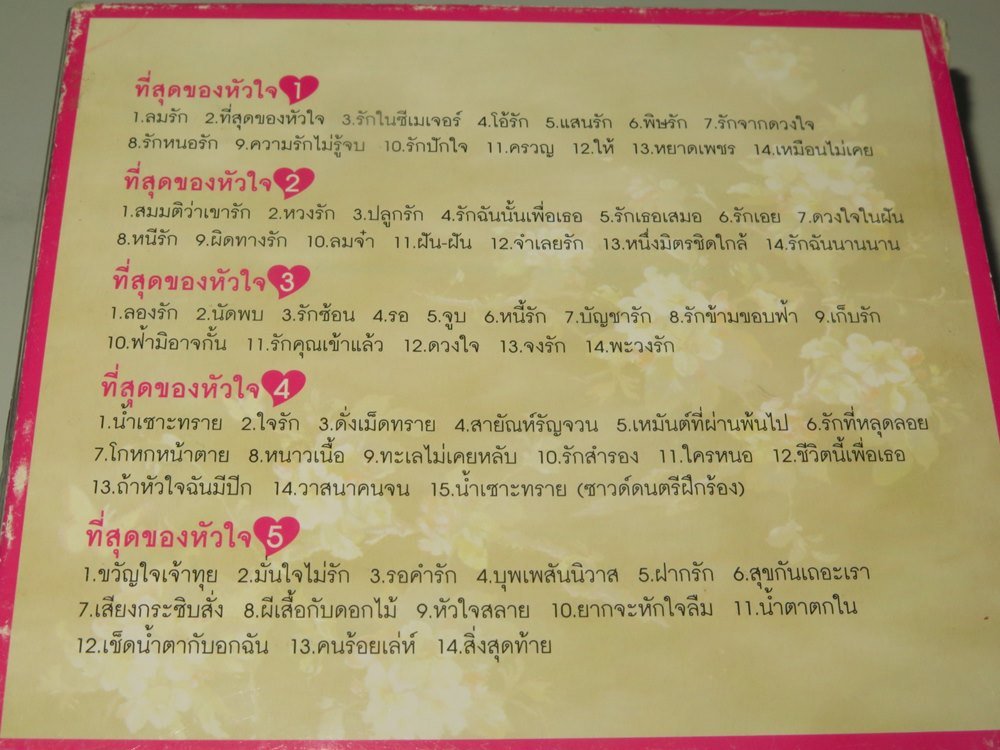 ที่สุดของหัวใจ 1
1.ลมรัก 2.ที่สุดของหัวใจ 3.รักในซีเมเจอร์ 4.โอ้รัก 5.แสนรัก 6.พิษรัก 7.รักจากดวงใจ
8.รักหนอรัก 9.ความรักไม่รู้จบ 10.รักปักใจ 11.ครวญ 12.ให้ 13.หยาดเพชร 14.เหมือนไม่เคย
ที่สุดของหัวใจ 2
1.สมมติว่าเขารัก 2.หวงรัก 3.ปลูกรัก 4.รักฉันนั้นเพื่อเธอ 5.รักเธอเสมอ 6.รักเอย 7.ดวงใจในฝัน
8.หนีรัก 9.ผิดทางรัก 10.ลมจ๋า 11.ฝัน-ฝัน 12.จำเลยรัก 13.หนึ่งมิตรชิดใกล้ 14.รักฉันนานนาน
ที่สุดของหัวใจ 3
1.ลองรัก 2.นัดพบ 3.รักซ้อน 4.รอ 5.จูบ 6.หนี้รัก 7.บัญชารัก 8.รักข้ามขอบฟ้า 9.เก็บรัก
10.ฟ้ามิอาจกั้น 11.รักคุณเข้าแล้ว 12.ดวงใจ 13.จงรัก 14.พะวงรัก
ที่สุดของหัวใจ 4
1.น้ำเซาะทราย 2.ใจรัก 3.ดั่งเม็ดทราย 4.สายัณห์รัญจวน 5.เหมันต์ที่ผ่านพ้นไป 6.รักที่หลุดลอย
7.โกหกหน้าตาย 8.หนาวเนื้อ 9.ทะเลไม่เคยหลับ 10.รักสำรอง 11.ใครหนอ 12.ชีวิตนี้เพื่อเธอ
13.ถ้าหัวใจฉันมีปีก 14.วาสนาคนจน 15.น้ำเซาะทราย (ซาวด์ดนตรีฝึกร้อง)
ที่สุดของหัวใจ 5
1.ขวัญใจเจ้าทุย 2.มั่นใจไม่รัก 3.รอคำรัก 4.บุพเพสันนิวาส 5.ฝากรัก 6.สุขกันเถอะเรา
7.เสียงกระซิบสั่ง 8.ผีเสื้อกับดอกไม้ 9.หัวใจสลาย 10.ยากจะหักใจลืม 11.น้ำตาตกใน
12.เช็ดน้ำตากับอกฉัน 13.คนร้อยเล่ห์ 14.สิ่งสุดท้าย